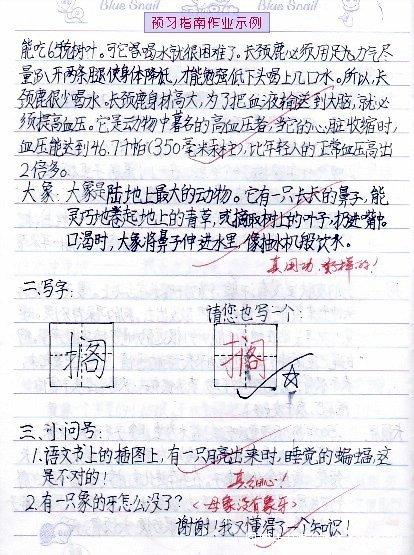 预习指南作业示例
Blue Snail
Blue Snail
能吃65磅树叶。可它喝水就很困难了。长颈鹿必须用足力气尽
量趴开两条腿使身体降低,才能勉强低下头喝上几口水。所以,长
颈鹿很少喝水。长颈鹿身材高大,为了把血液输送到大脑,就必
须提高血压。它是动物中著名的高血压者,当它的心脏收缩时,
血压能达到46.7千帕(350毫米汞柱),比年轻人的正常血压高出
2倍多。
大象:大象是陆地上最大的动物。它有一只长长的鼻子,能
灵巧地卷起地上的青草,或摘取树上的叶子,扔进嘴中。
口渴时,大象将鼻子伸进水里,像抽水机般饮水。
真用功,好样的!
二、写字:
请您也写一个:
搁
搁
三、小问号:
1.语文书上的插图上,有一只月亮出来时,睡觉的蝙蝠,这
是不对的!
真细心!
2.有一只象的牙怎么没了?(母象没有象牙)
谢谢!我又懂得了一个知识!